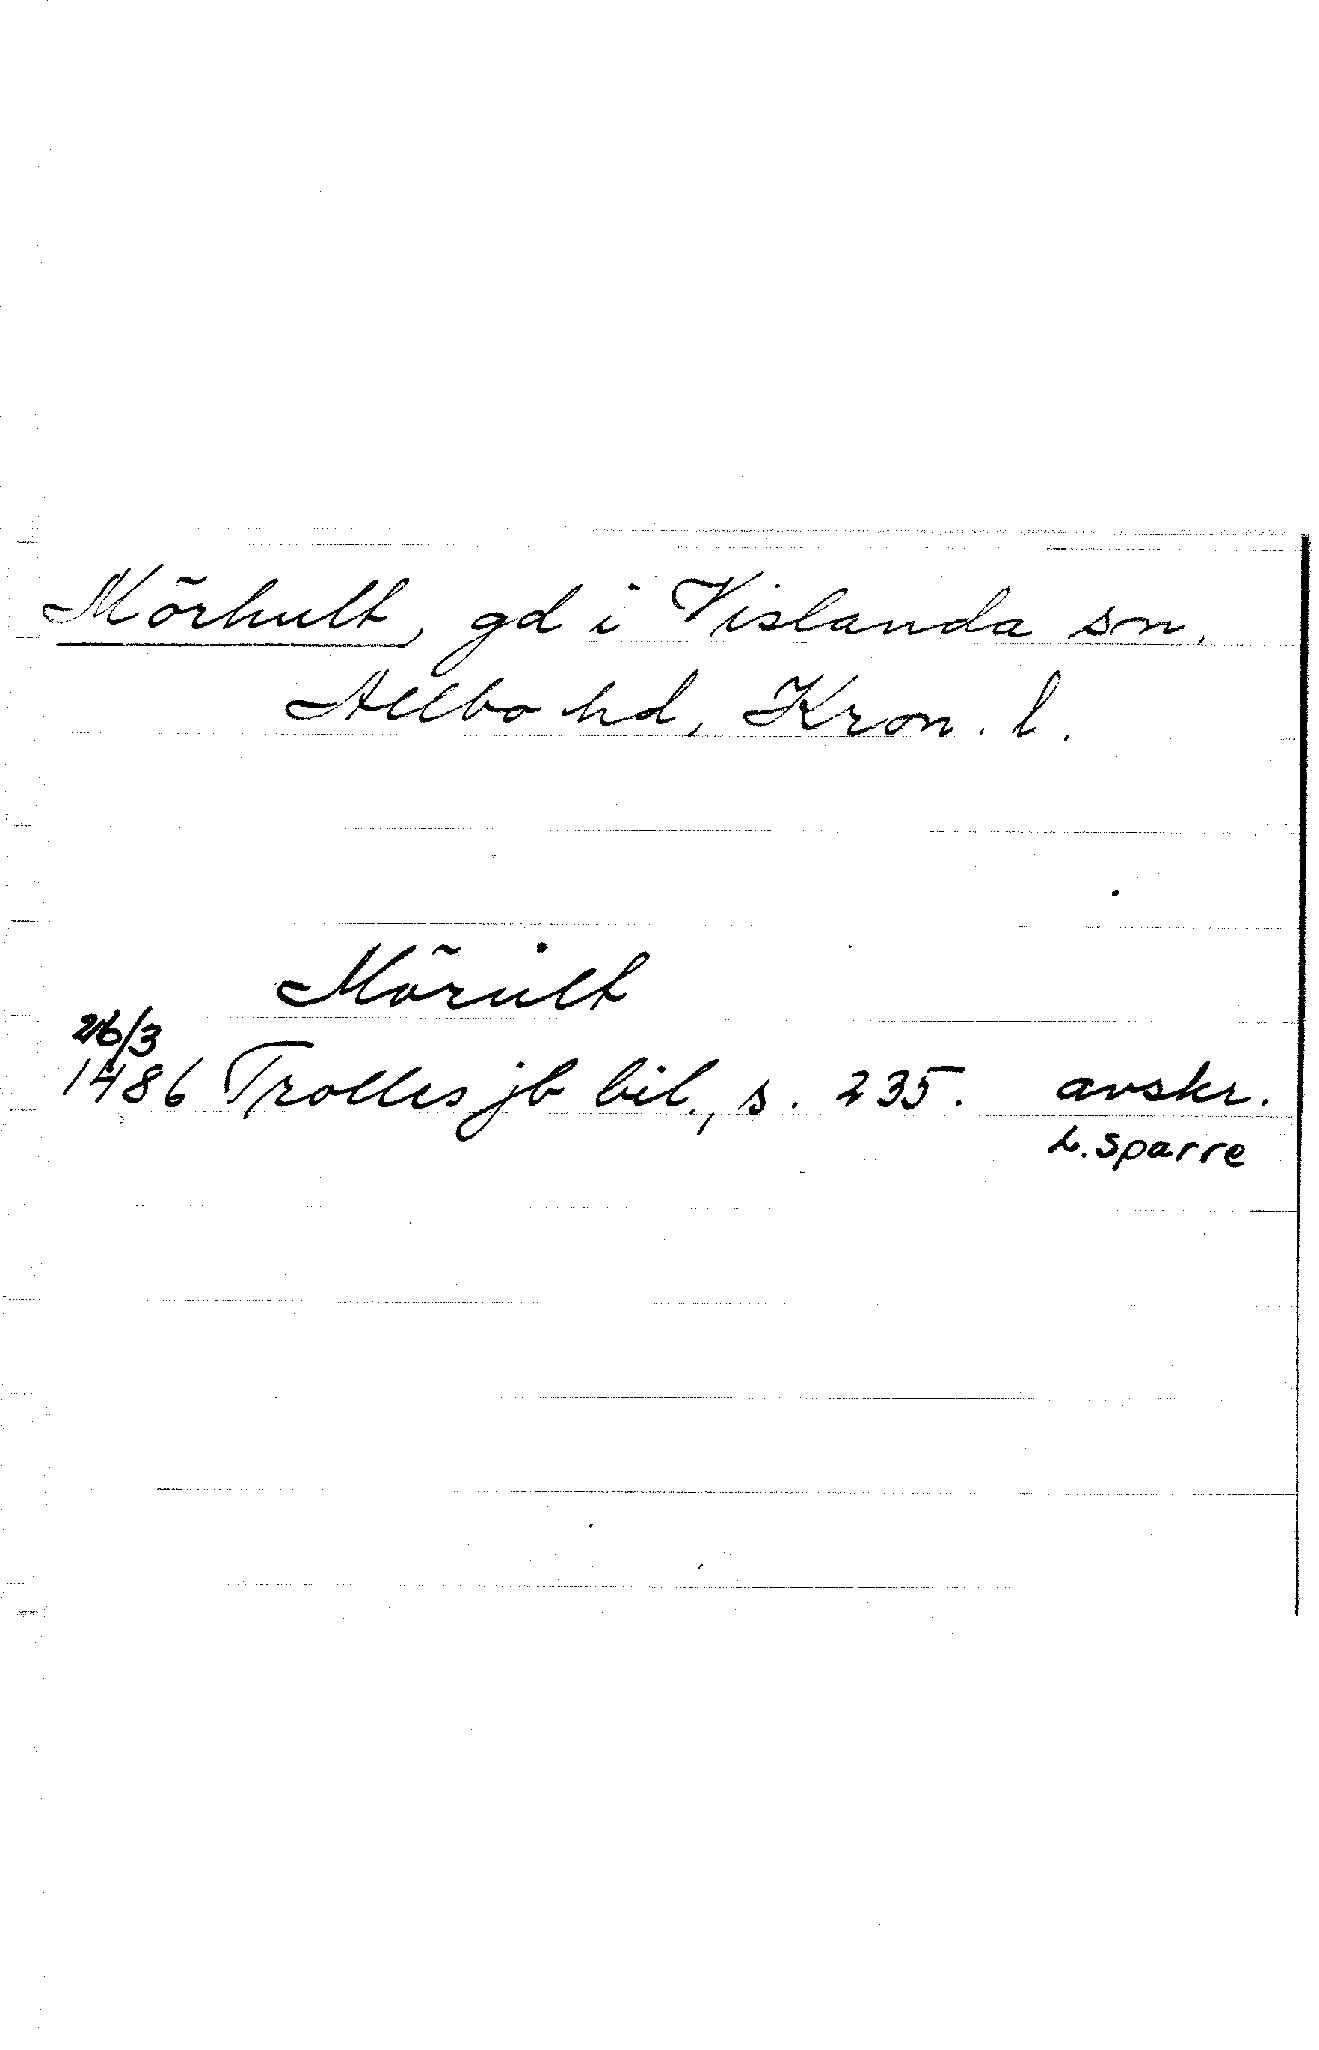 Mörhult, gd i Vislanda sn,
Allbo hd, Kron. l.
Mörult
26/3
1486 Trolles jb bil., s. 235. avskr.
L. Sparre